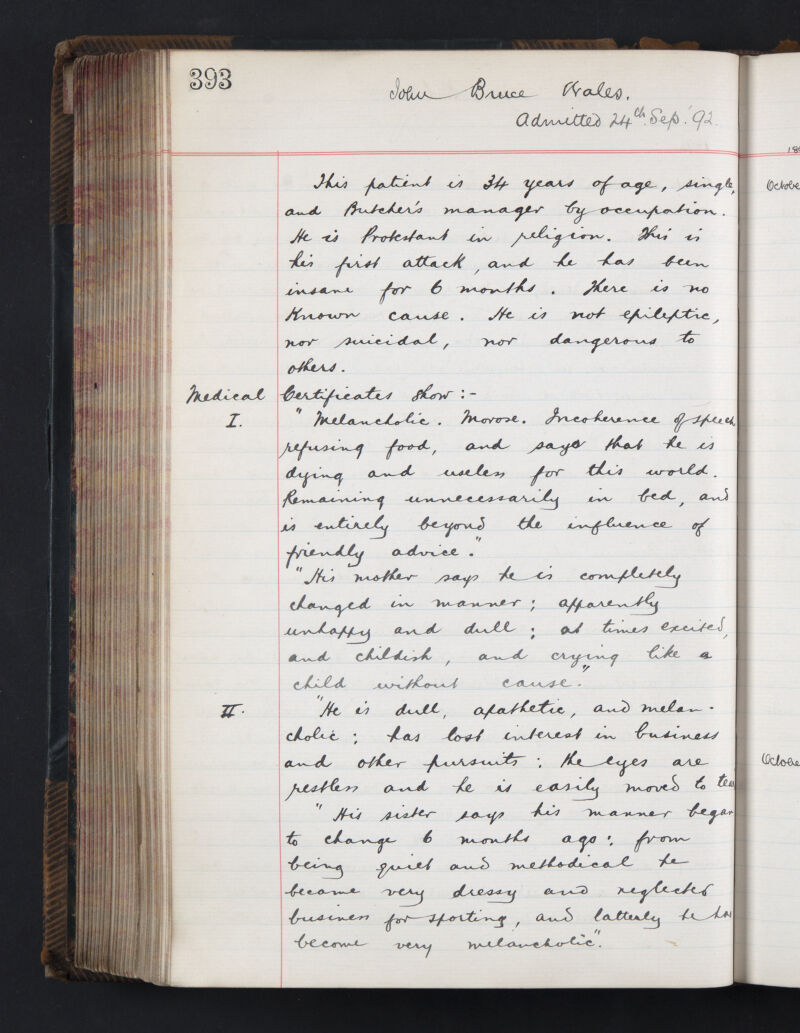 393
John Bruce Wales.
Admitted 24th. Sep.' 92.
This patient is 34 years of age, single,
and Butcher's manager by occupation.
He is Protestant in religion. This is
his first attack, and he has been
insane for 6 months. There is no
Known cause. He is not epileptic,
nor suicidal, nor dangerous to
others.
Medical Certificates show:-
I. "Melancholic. Morose. Incoherence of speech
refusing food, and says that he is
dying and useless for this world.
Remaining unnecessarily in bed, and
is entirely beyond the influence of
friendly advice."
"His mother says he is completely
changed in manner; apparently
unhappy and dull; at times excited,
and childish, and crying like a
child without cause."
II. "He is dull, apathetic, and melan-
cholic; has lost interest in business
and other pursuits: the eyes are
restless and he is easily moved to tea
"His sister says his manner began
to change 6 months ago: from
being quiet and methodical he
became very dressy and neglected
business for sporting, and latterly he has
become very melancholic".
189
Octobe
Octobe